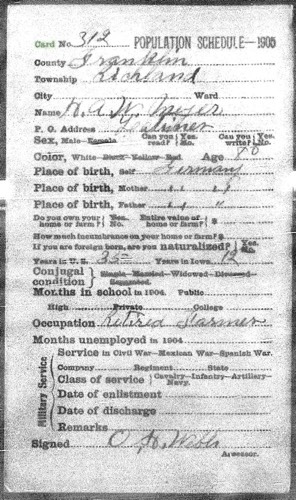 Card No. 312 POPULATION SCHEDULE—1905
County Franklin
Township
City Ward
Name H. A. W. Meyer
P. O. Address Latimer
Sex, Male—Female Can you read? Yes. No. Can you write? Yes. No.
Color, White—Black—Yellow—Red Age 80
Place of birth, Self Germany
Place of birth, Mother " "
Place of birth, Father " "
Do you own your home or farm? Yes. No. Entire value of home or farm? $
How much incumbrance on your home or farm? $
If you are foreign born, are you naturalized? Yes. No.
Years in U.S. 35 Years in Iowa 12
Conjugal condition Single—Married—Widowed—Divorced—Separated.
Months in school in 1904. Public
High Private College
Occupation Retired Farmer
Months unemployed in 1904
Military Service
Service in Civil War—Mexican War—Spanish War.
Company Regiment State
Class of service Cavalry—Infantry—Artillery—Navy.
Date of enlistment
Date of discharge
Remarks
Signed O. H.
Assessor.